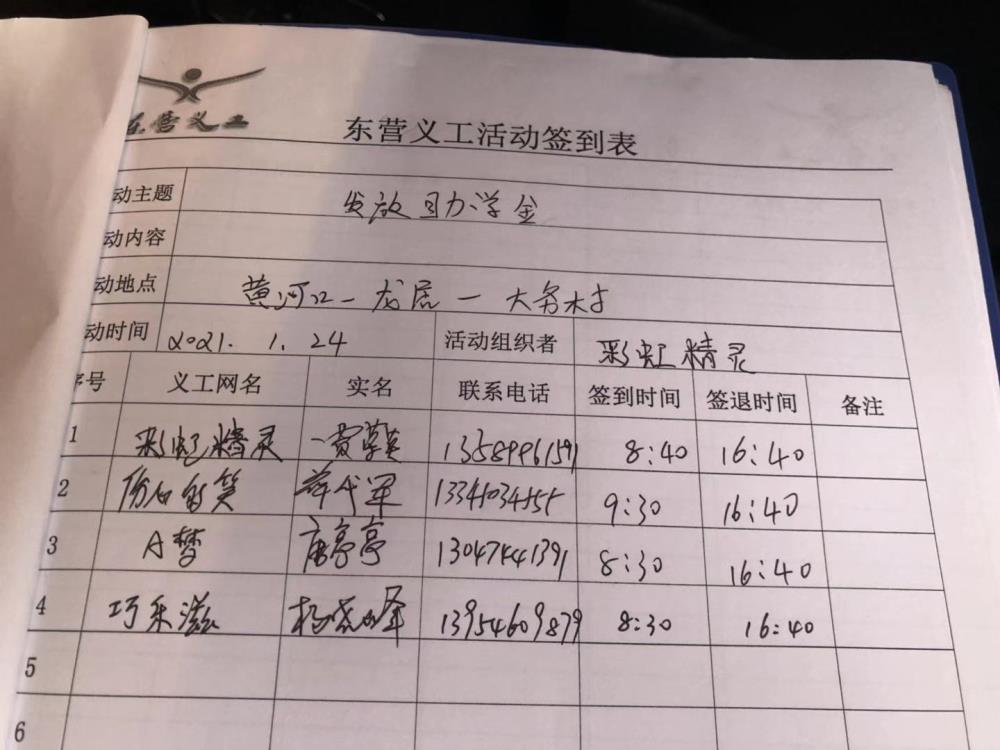 东营义工
东营义工活动签到表
动主题 发放助学金
动内容
动地点 黄河口-龙居-大务村
动时间 2021.1.24 活动组织者 彩虹精灵
序号 义工网名 实名 联系电话 签到时间 签退时间 备注
1 彩虹精灵 8:40 16:40
2 9:30 16:40
3 A梦 唐亭亭 13047441391 8:30 16:40
4 巧乐滋 13954609879 8:30 16:40
5
6